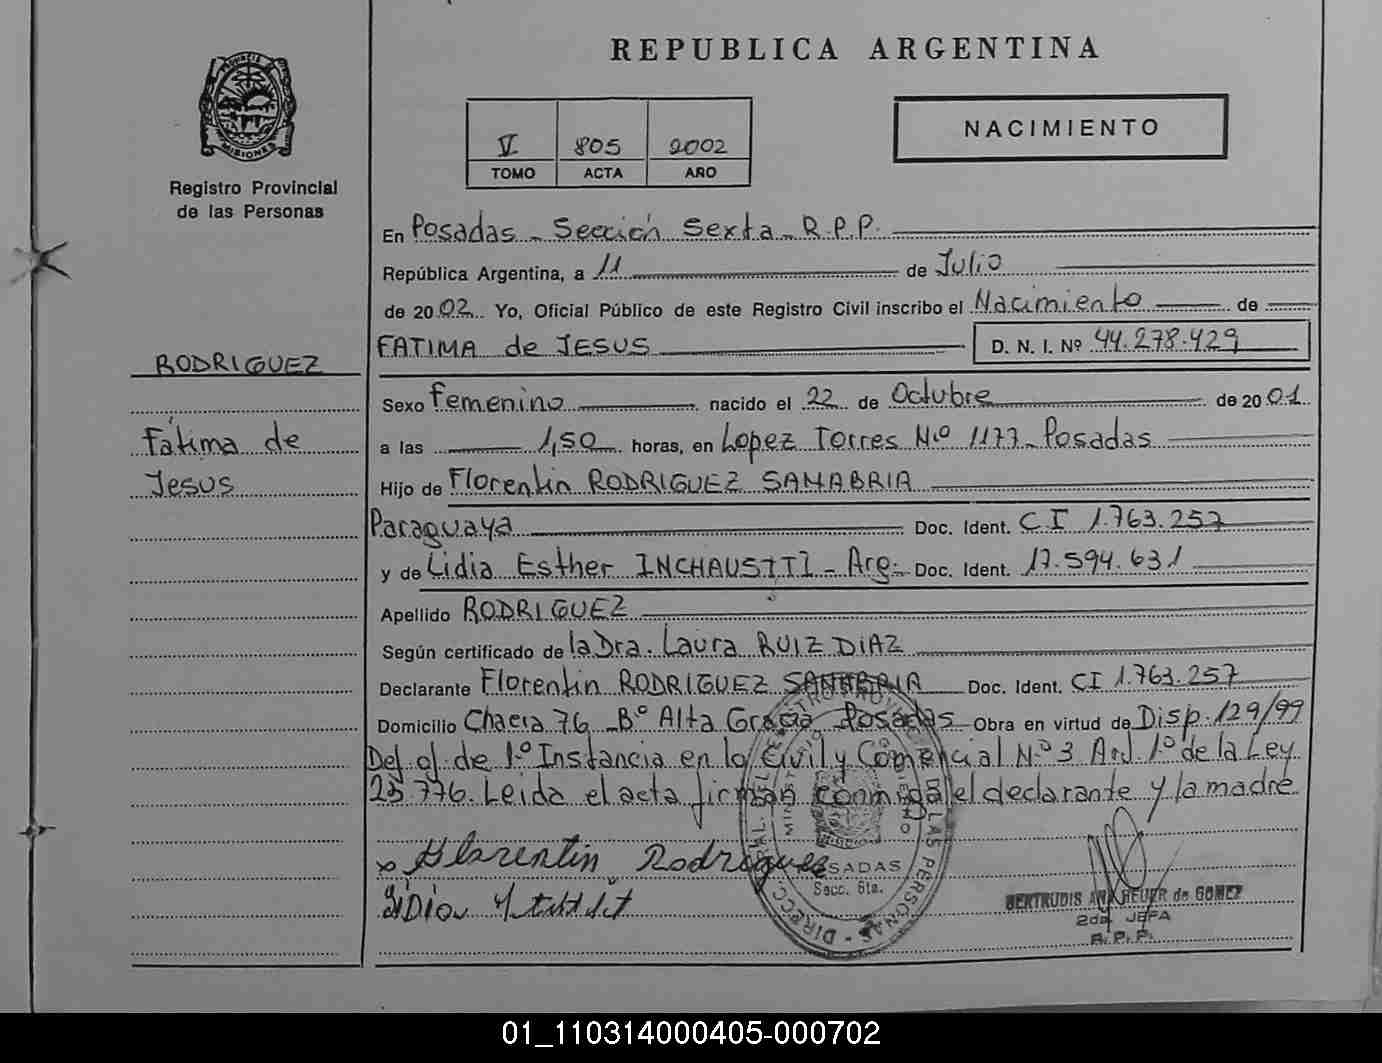 REPUBLICA ARGENTINA
PROVINCIA DE
MISIONES
Registro Provincial
de las Personas
V 805 2002
TOMO ACTA AÑO
NACIMIENTO
En Posadas - Sección Sexta - R.P.P.
República Argentina, a 11 de Julio
de 2002 Yo, Oficial Público de este Registro Civil inscribo el Nacimiento de
FATIMA de JESUS D. N. I. Nº 44.278.429
RODRIGUEZ
Fátima de
Jesus
Sexo Femenino nacido el 22 de Octubre de 2001
a las 1,50 horas, en Lopez Torres N.º 1177 - Posadas
Hijo de Florentin RODRIGUEZ SANABRIA
Paraguaya Doc. Ident. C.I 1.763.257
y de Lidia Esther INCHAUSTTI - Arg. Doc. Ident. 17.594.631
Apellido RODRIGUEZ
Según certificado de la Dra. Laura RUIZ DIAZ
Declarante Florentin RODRIGUEZ SANABRIA Doc. Ident. CI 1.763.257
Domicilio Chacra 76 - Bº Alta Gracia Posadas Obra en virtud de Disp. 129/99
Def. of. de 1º Instancia en lo Civil y Comercial N.º 3 Art. 1º de la Ley
25.776. Leida el acta firman conmigo el declarante y la madre
x Florentin Rodrigues
Lidia
DIRECC. GRAL. DEL REGISTRO PROV. DE LAS PERSONAS
MINISTERIO GOBIERNO
POSADAS
Secc. 6ta.
GERTRUDIS ANA HEUER de GOMEZ
2da. JEFA
R.P.P.
01_110314000405-000702